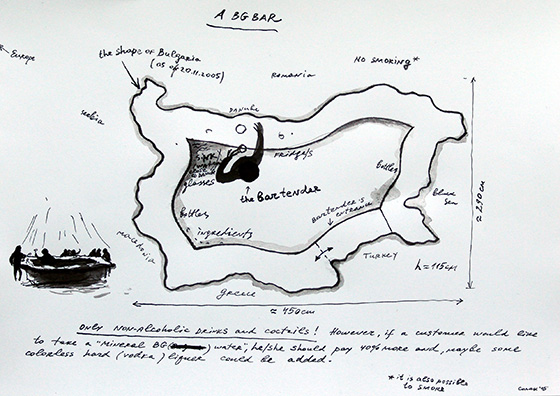 A BG BAR
Europe
the shape of Bulgaria
(as of 20.11.2005)
Romania
NO SMOKING*
Serbia
DANUBE
FRIDGE/S
glasses
the Bartender
Bottles
Bottles
Bartender's
entrance
Black
Sea
≈ 290 cm
ingredients
Macedonia
TURKEY
h = 115 cm
Greece
≈ 450 cm
ONLY NON-Alcoholic DRINKS and coctails! However, if a customer would like
to take a "Mineral BG water", he/she should pay 40% more and, maybe some
colorless hard (vodka) liquer could be added.
* it is also possible
to smoke